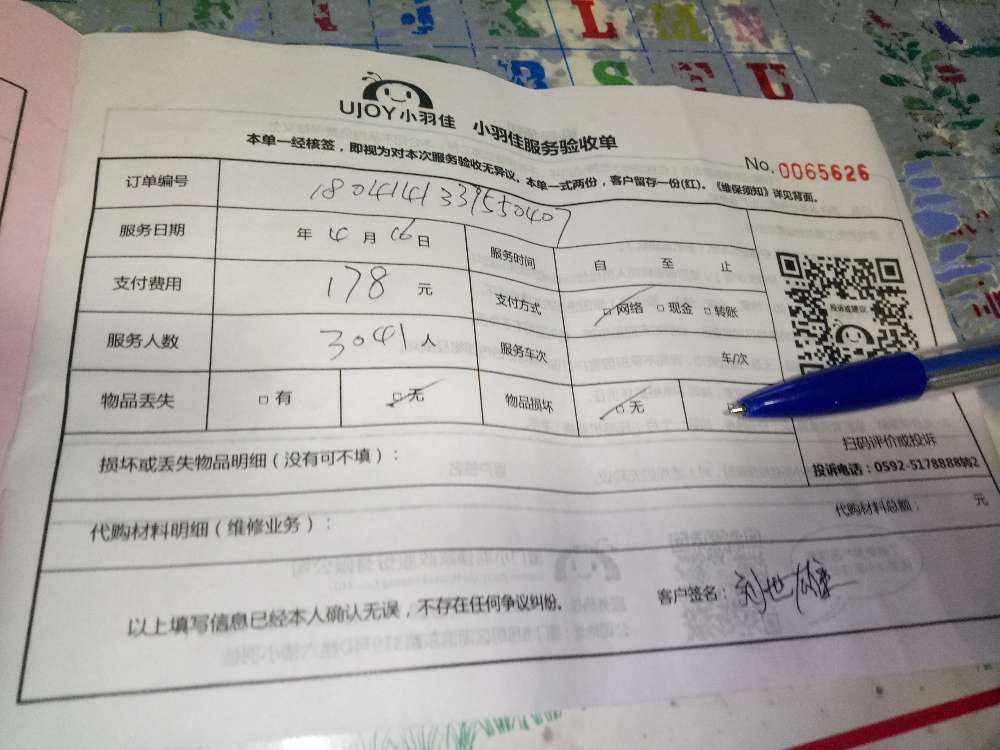 K L M N
R S T U
UJOY小羽佳 小羽佳服务验收单
No. 0065626
本单一经核签，即视为对本次服务验收无异议。本单一式两份，客户留存一份(红)。《维保须知》详见背面。
订单编号 1804141339550407
服务日期 年 4 月 16 日 服务时间 自 至 止
支付费用 178 元 支付方式 □网络 □现金 □转账
服务人数 3041 人 服务车次 车/次
投诉或建议
物品丢失 □有 □无 物品损坏 □无
扫码评价或投诉
投诉电话：0592-5178888转2
损坏或丢失物品明细（没有可不填）：
代购材料明细（维修业务）： 代购材料总额： 元
以上填写信息已经本人确认无误，不存在任何争议纠纷。 客户签名：刘世雄